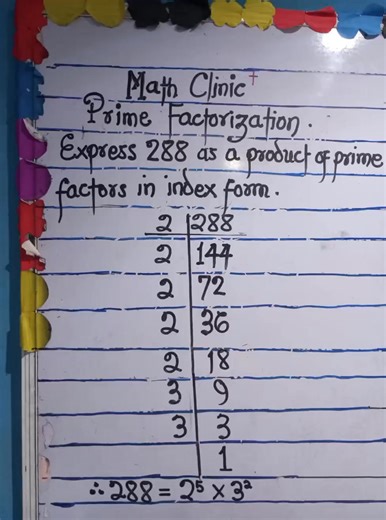 Math Clinic +
Prime Factorization.
Express 288 as a product of prime
factors in index form.
2 | 288
2 | 144
2 | 72
2 | 36
2 | 18
3 | 9
3 | 3
| 1
∴ 288 = 2⁵ × 3²